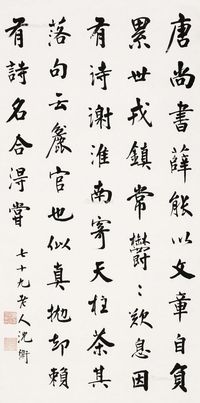 唐尚書薛能以文章自負
累世戎鎮常鬱〻歎息因
有诗謝淮南寄天柱茶其
落句云麄官也似真抛却賴
有詩名合得嘗
七十九老人沈衛